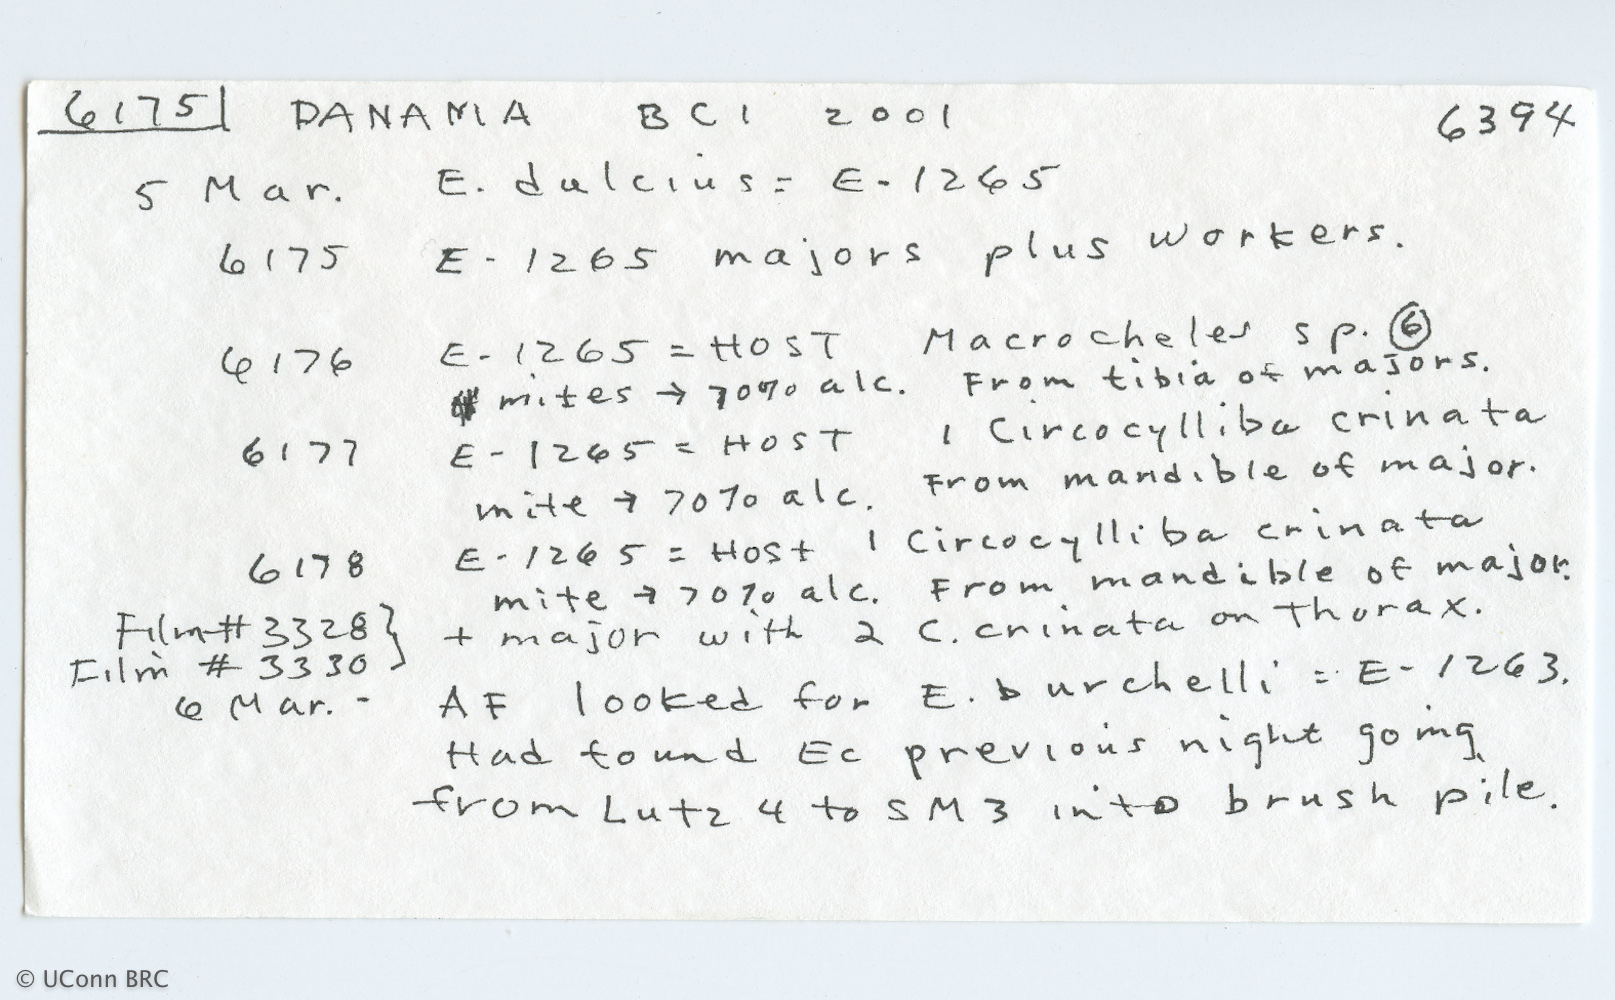 6175 PANAMA BCI 2001 6394
5 Mar. E. dulcius = E-1265
6175 E-1265 majors plus workers.
6176 E-1265 = HOST Macrocheles sp. 6
mites → 70% alc. From tibia of majors.
6177 E-1265 = HOST 1 Circocylliba crinata
mite → 70% alc. From mandible of major.
6178 E-1265 = Host 1 Circocylliba crinata
mite → 70% alc. From mandible of major.
Film # 3328 } + major with 2 C. crinata on Thorax.
Film # 3330
6 Mar. - AF looked for E. burchelli = E-1263.
Had found Ec previous night going
from Lutz 4 to SM3 into brush pile.
© UConn BRC